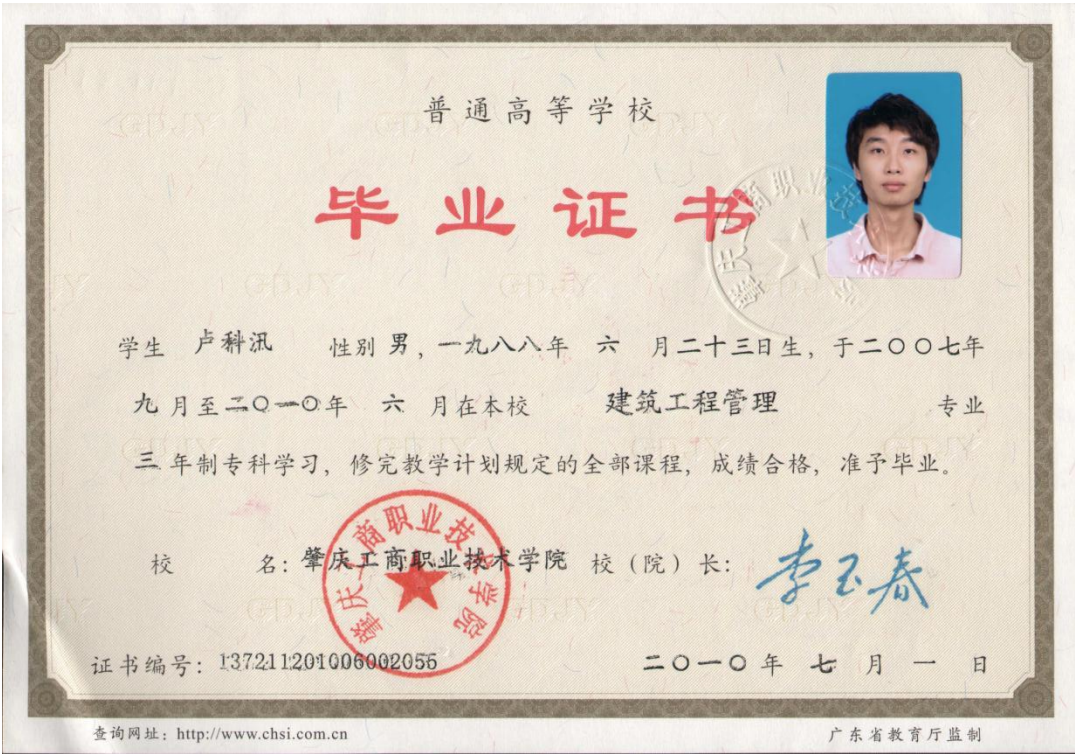 普通高等学校
毕业证书
学生 卢科汛 性别 男，一九八八年 六 月二十三日生，于二〇〇七年
九月至二〇一〇年 六 月在本校 建筑工程管理 专业
三年制专科学习，修完教学计划规定的全部课程，成绩合格，准予毕业。
校 名：肇庆工商职业技术学院 校（院）长：李玉春
肇庆工商职业技术学院
证书编号：137211201006002056 二〇一〇年 七 月 一 日
查询网址：http://www.chsi.com.cn 广东省教育厅监制